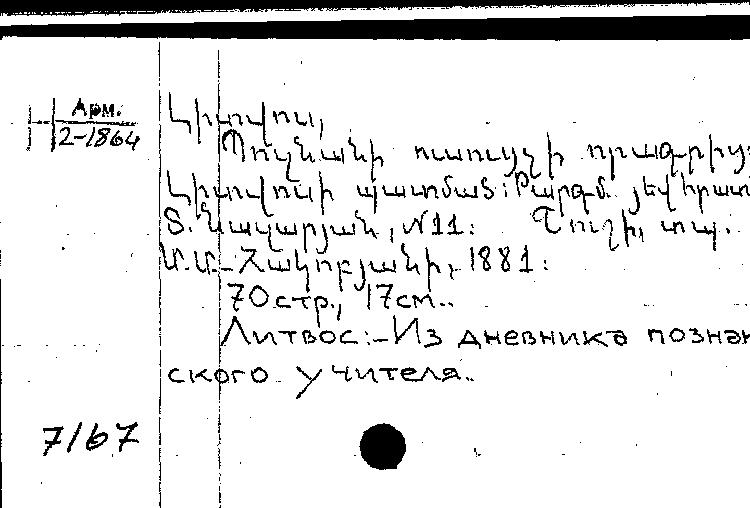 Арм.
2-1864
Լիտվոս,
Պոզնանի ուսուցչի օրագրից
Լիտվոսի պատմած: Թարգմ. յեվ հրատ
Տ. Նազարյան, N11: Շուշի, տպ.
Մ.Մ.-Հակոբյանի, 1881:
70стр., 17см..
Литвос:-Из дневника познан
ского учителя..
7167